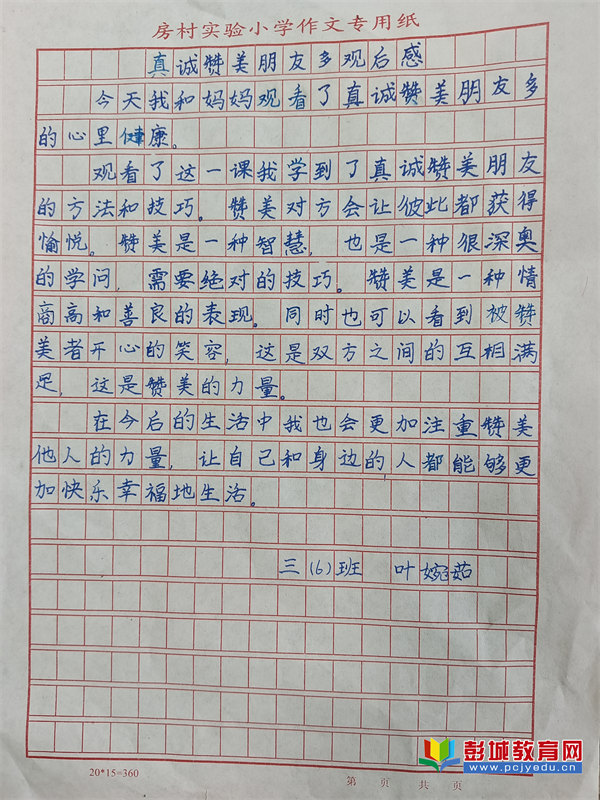 房村实验小学作文专用纸
真诚赞美朋友多观后感
今天我和妈妈观看了真诚赞美朋友多
的心里健康。
观看了这一课我学到了真诚赞美朋友
的方法和技巧。赞美对方会让彼此都获得
愉悦。赞美是一种智慧，也是一种很深奥
的学问，需要绝对的技巧。赞美是一种情
商高和善良的表现。同时也可以看到被赞
美者开心的笑容，这是双方之间的互相满
足，这是赞美的力量。
在今后的生活中我也会更加注重赞美
他人的力量，让自己和身边的人都能够更
加快乐幸福地生活。
三(6)班 叶婉茹
20*15=360
第 页 共 页
彭城教育网
www.pcjyedu.cn